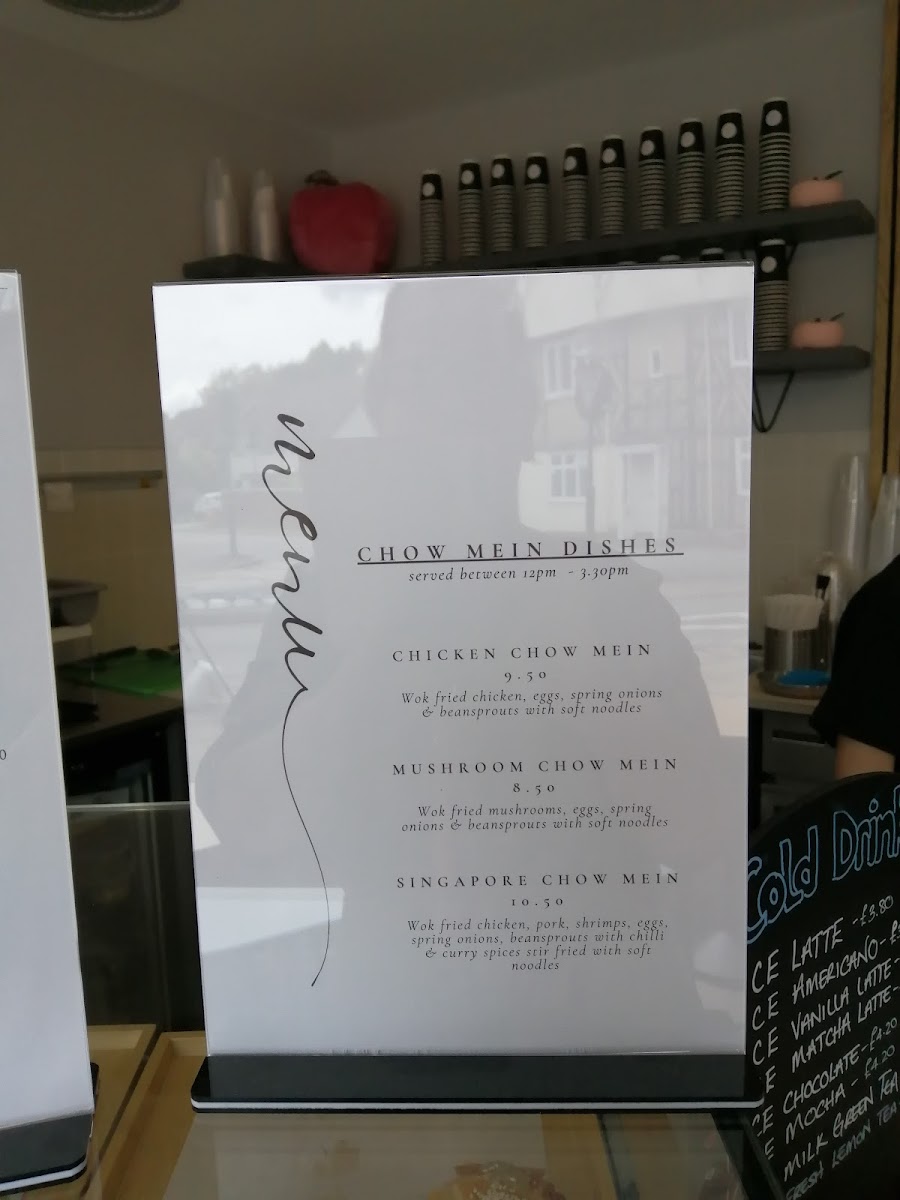 menu
CHOW MEIN DISHES
served between 12pm - 3.30pm
CHICKEN CHOW MEIN
9.50
Wok fried chicken, eggs, spring onions
& beansprouts with soft noodles
MUSHROOM CHOW MEIN
8.50
Wok fried mushrooms, eggs, spring
onions & beansprouts with soft noodles
SINGAPORE CHOW MEIN
10.50
Wok fried chicken, pork, shrimps, eggs,
spring onions, beansprouts with chilli
& curry spices stir fried with soft
noodles
0
Cold Drink
CE LATTE - £3.80
CE AMERICANO - £
CE VANILLA LATTE -
CE MATCHA LATTE -
CE CHOCOLATE - £4.20
E MOCHA - £4.20
MILK GREEN TEA
FRESH LEMON TEA